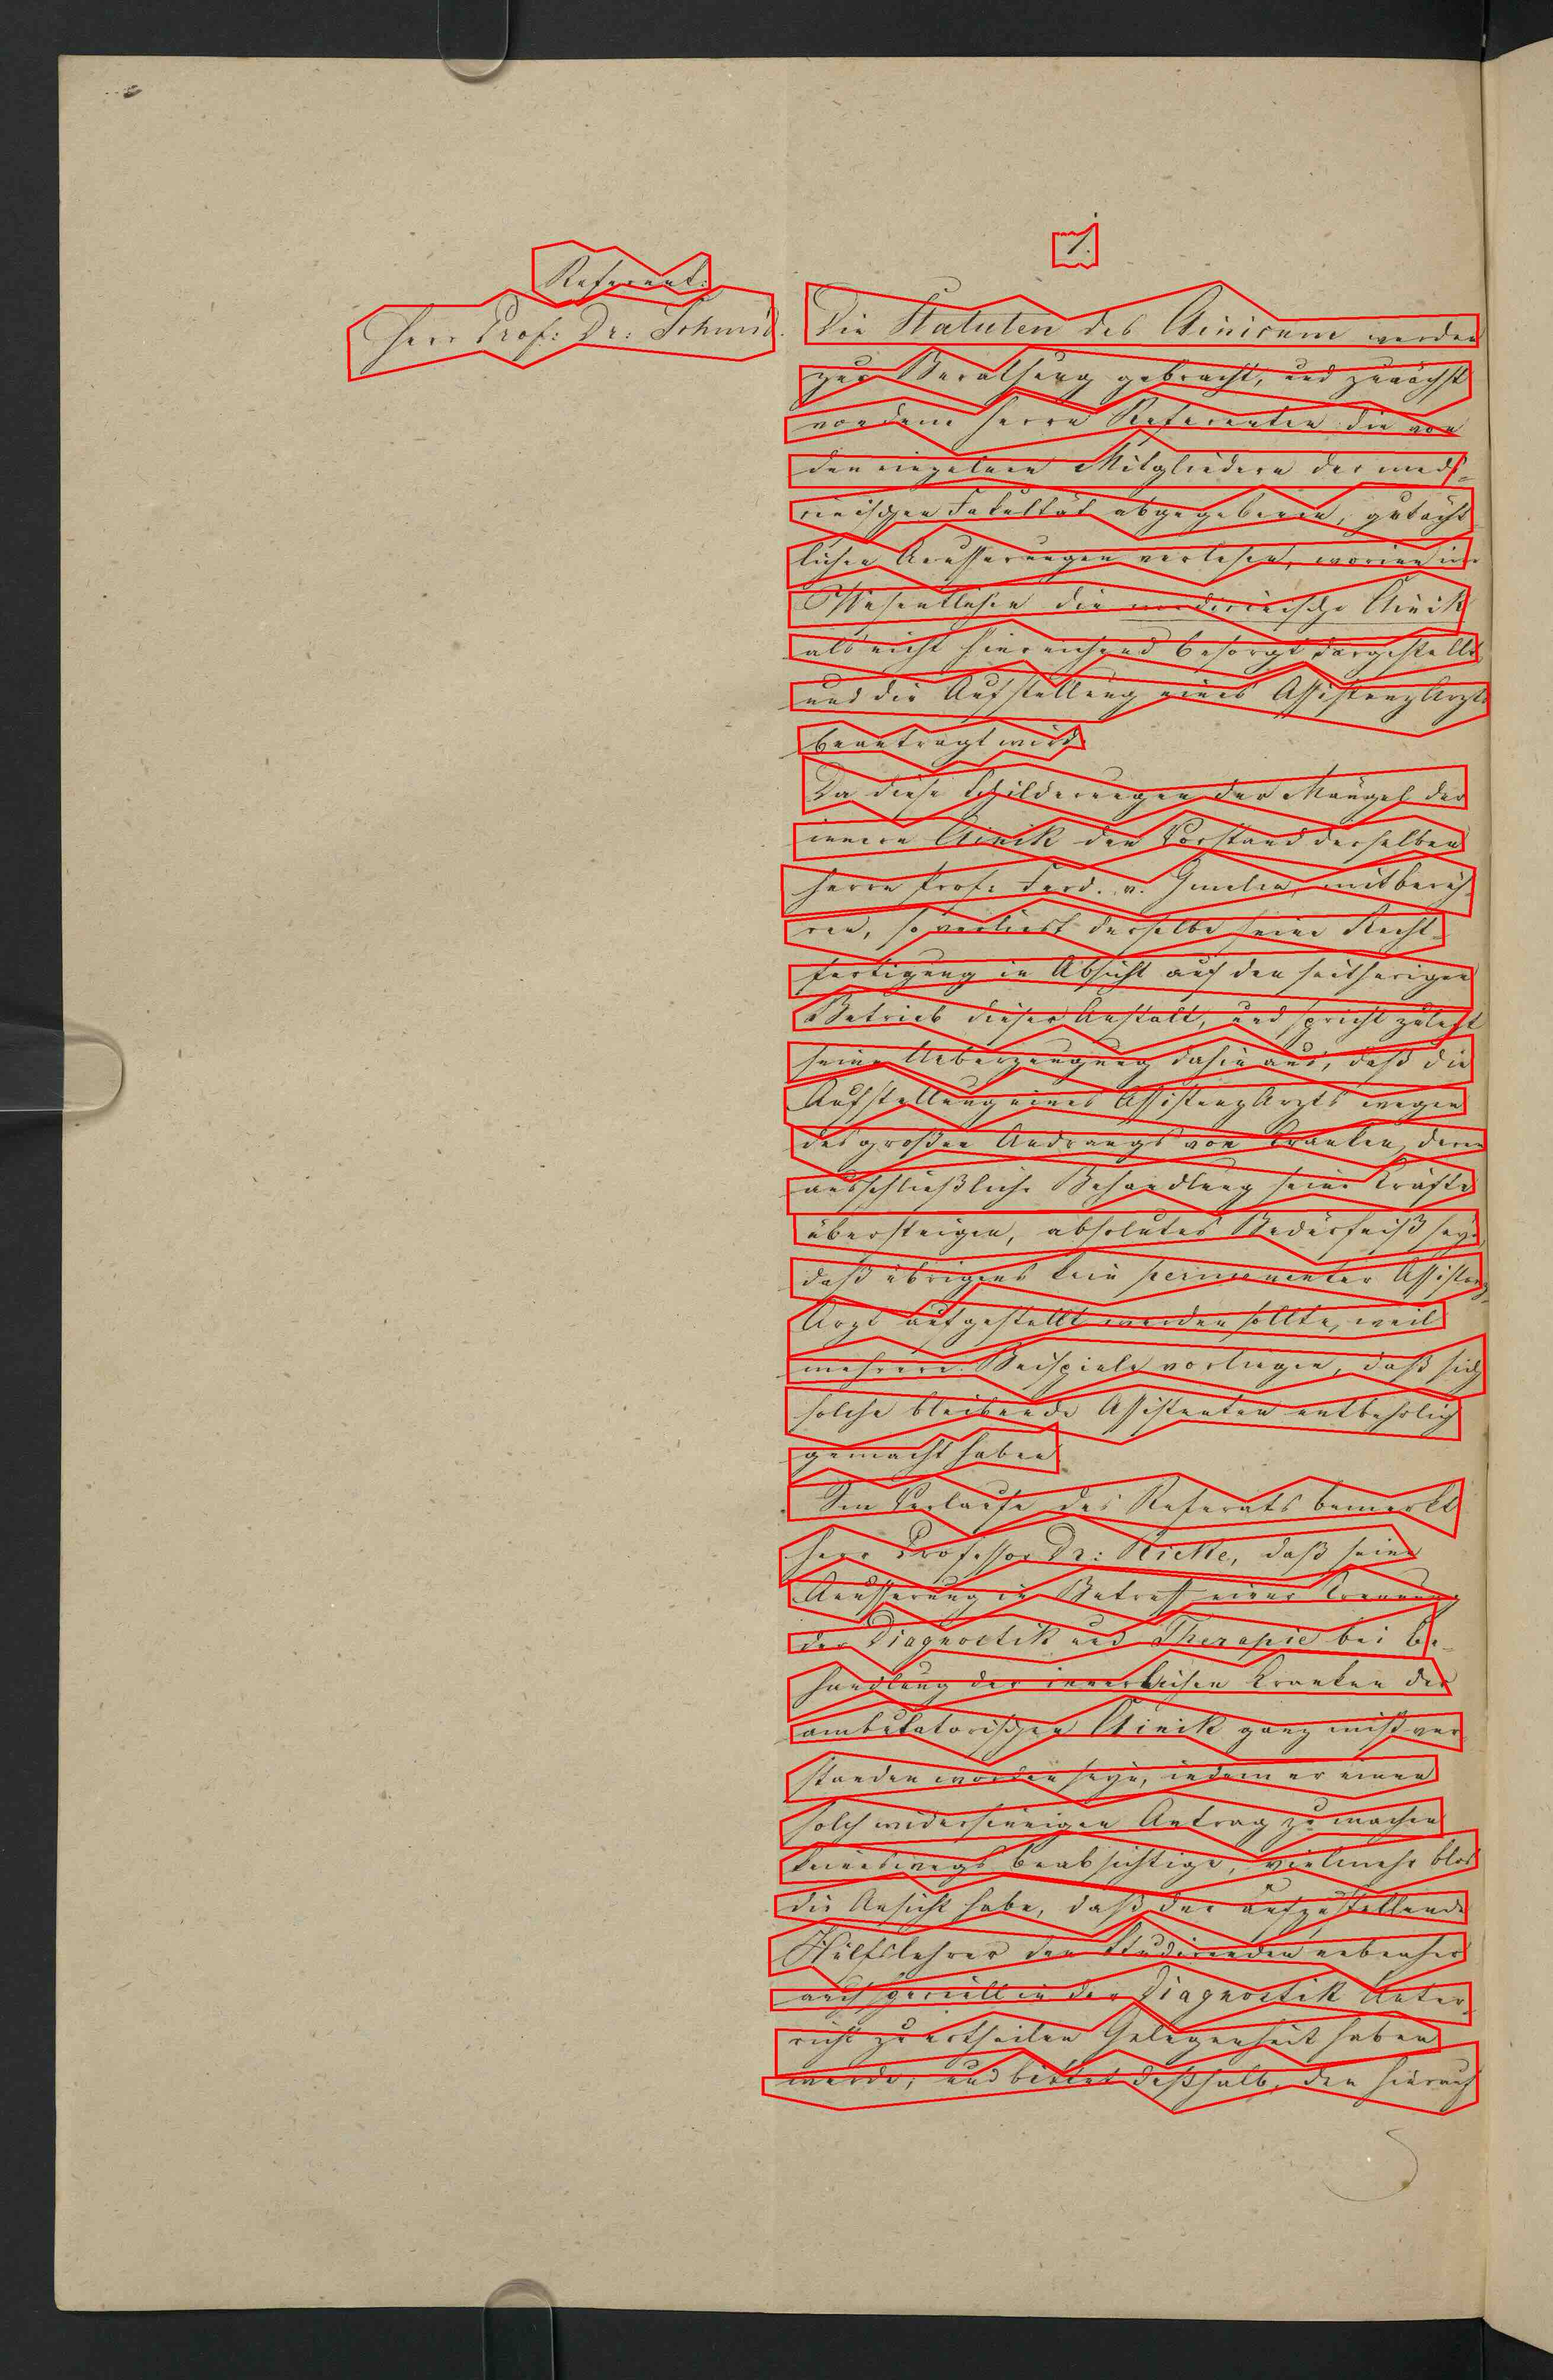 1.
Referent:
Herr Prof: Dr: Schmid.
Die Statuten des Clinicum werden
zur Berathung gebracht, und zunächst
von dem Herrn Referenten die von
den einzelnen Mitgliedern der medi-
cinischen Fakultät abgegebenen, gutächt-
lichen Aeusserungen verlesen, worinn im
Wesentlichen die medicinische Clinik
als nicht hinreichend besorgt dargestellt
und die Aufstellung eines AssistenzArzts
beantragt wird.
Da diese Schilderungen der Mängel der
innern Clinik den Vorstand derselben
Herrn Prof. Ferd. v. Gmelin, mitberüh-
ren, so verliest derselbe seine Recht-
fertigung in Absicht auf den seitherigen
Betrieb dieser Anstalt, und spricht zuletzt
seine Ueberzeugung dahin aus, daß die
Aufstellung eines AssistenzArzts wegen
des großen Andrangs von Kranken, deren
ausschließliche Behandlung seine Kräfte
übersteigen, absolutes Bedürfniß sey,
daß übrigens kein permanenter Assistenz-
Arzt aufgestellt werden sollte, weil
mehrere Beispiele vorliegen, daß sich
solche bleibende Assistenten entbehrlich
gemacht haben.
Im Verlaufe des Referats bemerkt
Herr Professor Dr: Riecke, daß seine
Aeusserung in Betreff einer Trennung
der Diagnostik und Therapie bei Be-
handlung der innerlichen Kranken der
ambulatorischen Clinik ganz mißver-
standen worden seye, indem er einen
solch widersinnigen Antrag zu machen
keineswegs beabsichtige, vielmehr blos
die Ansicht habe, daß der aufzustellende
Hülfslehrer den Studirenden nebenher
auch speciell in der Diagnostik Unter-
richt zu ertheilen Gelegenheit haben
werde; und bittet deßhalb, den hierauf